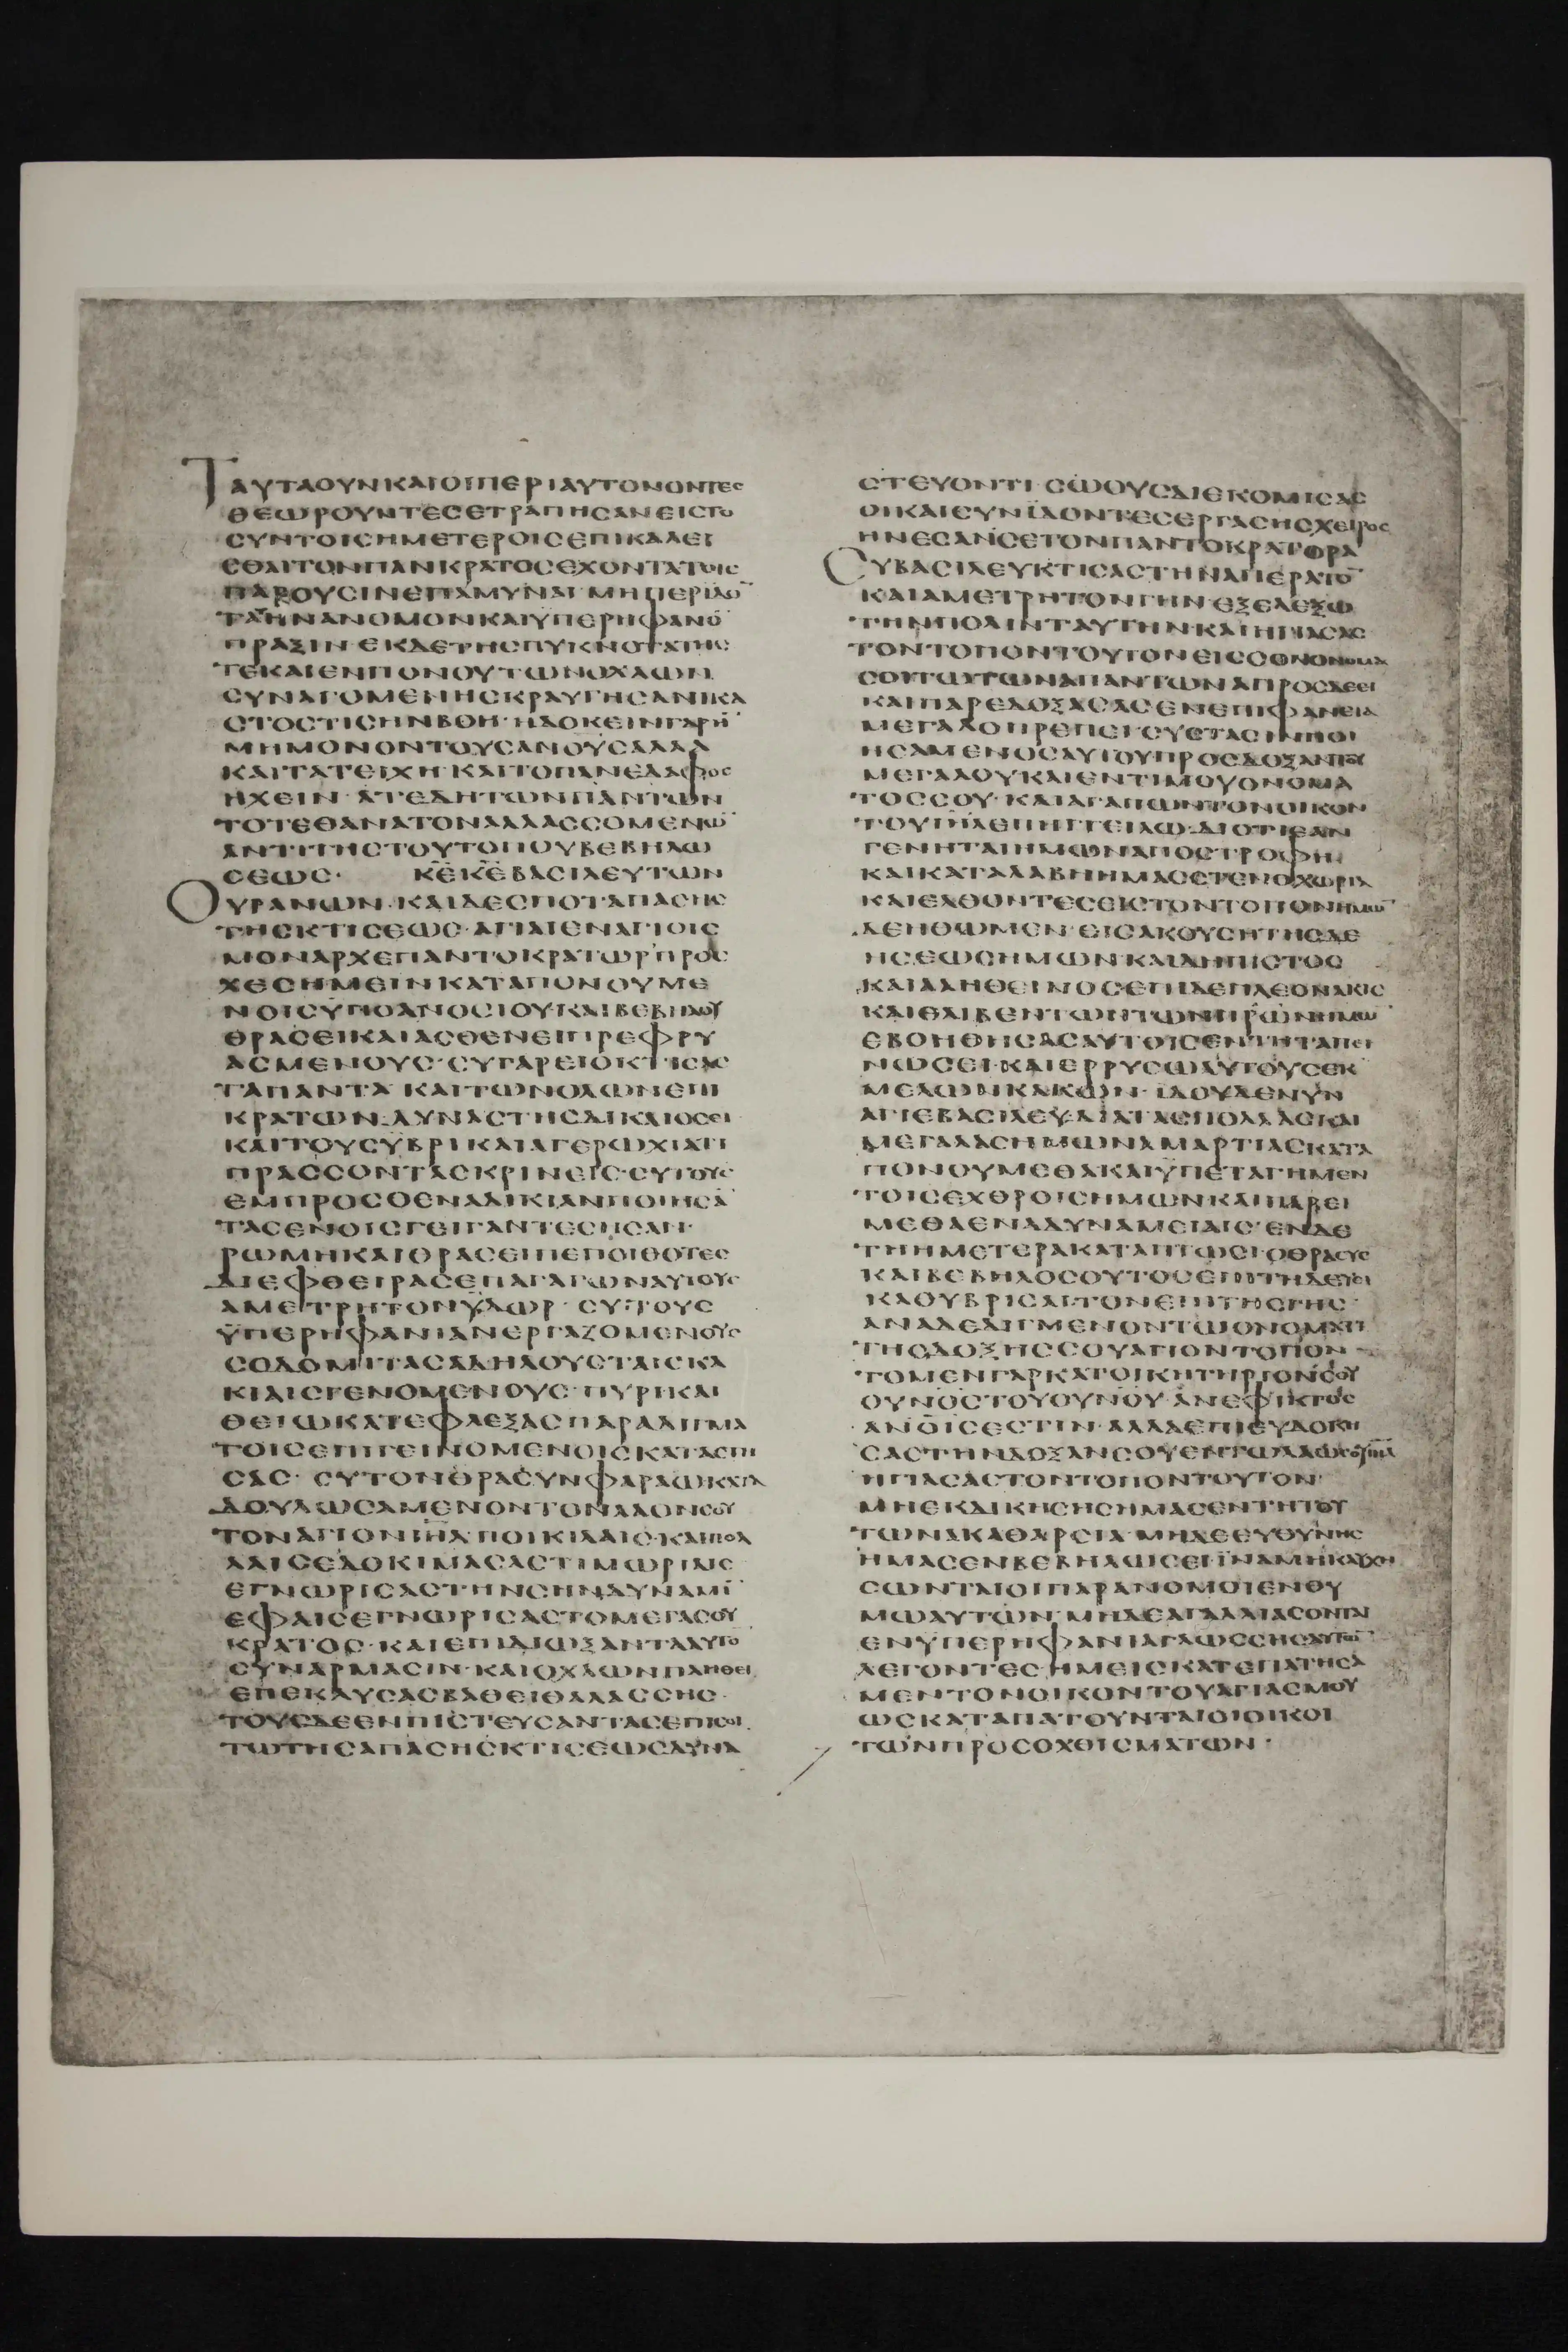 ΤΑΥΤΑΟΥΝΚΑΙΟΙΠΕΡΙΑΥΤΟΝΟΝΤΕΣ
ΘΕΩΡΟΥΝΤΕΣΕΤΡΑΠΗΣΑΝΕΙΣΤΟ
ΣΥΝΤΟΙΣΗΜΕΤΕΡΟΙΣΕΠΙΚΑΛΕΙ
ΣΘΑΙΤΟΝΠΑΝΚΡΑΤΟΣΕΧΟΝΤΑΤΟΙΣ
ΠΑΡΟΥΣΙΝΕΠΑΜΥΝΑΙ·ΜΗΠΕΡΙΙΔΟ̅
ΤΑΗΝΑΝΟΜΟΝΚΑΙΥΠΕΡΗΦΑΝΟ̅
ΠΡΑΞΙΝ·ΕΚΔΕΤΗΣΠΥΚΝΟΤΑΤΗΣ
ΤΕΚΑΙΕΝΠΟΝΟΥΤΩΝΟΧΛΩΝ
ΣΥΝΑΓΟΜΕΝΗΣΚΡΑΥΓΗΣΑΝΙΚΑ
ΣΤΟΣΤΙΣΗΝΒΟΗ·ΗΔΟΚΕΙΝΓΑΡΗ̅
ΜΗΜΟΝΟΝΤΟΥΣΑΝΟΥΣΑΛΛΑ
ΚΑΙΤΑΤΕΙΧΗ·ΚΑΙΤΟΠΑΝΕΔΑΦΟΣ
ΗΧΕΙΝ·ΑΤΕΔΗΤΩΝΠΑΝΤΩΝ
ΤΟΤΕΘΑΝΑΤΟΝΑΛΛΑΣΣΟΜΕΝΩ̅
ΑΝΤΙΤΗΣΤΟΥΤΟΠΟΥΒΕΒΗΛΩ
ΣΕΩΣ· Κ̅Ε̅Κ̅Ε̅ΒΑΣΙΛΕΥΤΩΝ
ΟΥΡΑΝΩΝ·ΚΑΙΔΕΣΠΟΤΑΠΑΣΗΣ
ΤΗΣΚΤΙΣΕΩΣ·ΑΓΙΑΙΕΝΑΓΙΟΙΣ
ΜΟΝΑΡΧΕΠΑΝΤΟΚΡΑΤΩΡΠΡΟΣ
ΧΕΣΗΜΕΙΝΚΑΤΑΠΟΝΟΥΜΕ
ΝΟΙΣΥΠΟΑΝΟΣΙΟΥΚΑΙΒΕΒΗΛΟΥ
ΘΡΑΣΕΙΚΑΙΑΣΘΕΝΕΙΠΕΦΡΥ
ΑΣΜΕΝΟΥΣ·ΣΥΓΑΡΕΙΟΚΤΙΣΑΣ
ΤΑΠΑΝΤΑ·ΚΑΙΤΩΝΟΛΩΝΕΠΙ
ΚΡΑΤΩΝ·ΔΥΝΑΣΤΗΣΔΙΚΑΙΟΣΕΙ
ΚΑΙΤΟΥΣΥΒΡΙΚΑΙΑΓΕΡΩΧΙΑΤΙ
ΠΡΑΣΣΟΝΤΑΣΚΡΙΝΕΙΣ·ΣΥΤΟΥΣ
ΕΜΠΡΟΣΘΕΝΑΔΙΚΙΑΝΠΟΙΗΣΑ̅
ΤΑΣΕΝΟΙΣΓΕΙΓΑΝΤΕΣΗΣΑΝ·
ΡΩΜΗΚΑΙΘΡΑΣΕΙΠΕΠΟΙΘΟΤΕΣ
ΔΙΕΦΘΕΙΡΑΣΕΠΑΓΑΓΩΝΑΥΤΟΥΣ
ΑΜΕΤΡΗΤΟΝΫΔΩΡ·ΣΥΤΟΥΣ
ΫΠΕΡΗΦΑΝΙΑΝΕΡΓΑΖΟΜΕΝΟΥΣ
ΣΟΔΟΜΙΤΑΣΑΔΗΛΟΥΣΤΑΙΣΚΑ
ΚΙΑΙΣΓΕΝΟΜΕΝΟΥΣ·ΠΥΡΙΚΑΙ
ΘΕΙΩΚΑΤΕΦΛΕΞΑΣΠΑΡΑΔΙΓΜΑ
ΤΟΙΣΕΠΙΓΕΙΝΟΜΕΝΟΙΣΚΑΤΑΣΤΗ
ΣΑΣ·ΣΥΤΟΝΘΡΑΣΥΝΦΑΡΑΩΚΑΤΑ
ΔΟΥΛΩΣΑΜΕΝΟΝΤΟΝΛΑΟΝΣΟΥ
ΤΟΝΑΓΙΟΝΙ̅Η̅Λ̅ΠΟΙΚΙΛΑΙΣ·ΚΑΙΠΟΛ
ΛΑΙΣΕΔΟΚΙΜΑΣΑΣΤΙΜΩΡΙΑΙΣ
ΕΓΝΩΡΙΣΑΣΤΗΝΣΗΝΔΥΝΑΜΙ̅
ΕΦΑΙΣΕΓΝΩΡΙΣΑΣΤΟΜΕΓΑΣΟΥ
ΚΡΑΤΟΣ·ΚΑΙΕΠΙΔΙΩΞΑΝΤΑΑΥΤΟ̅
ΣΥΝΑΡΜΑΣΙΝ·ΚΑΙΟΧΛΩΝΠΛΗΘΕΙ
ΕΠΕΚΛΥΣΑΣΒΑΘΕΙΘΑΛΑΣΣΗΣ·
ΤΟΥΣΔΕΕΝΠΙΣΤΕΥΣΑΝΤΑΣΕΠΙΣΟΙ
ΤΩΤΗΣΑΠΑΣΗΣΚΤΙΣΕΩΣΔΥΝΑ
ΣΤΕΥΟΝΤΙ·ΣΩΟΥΣΔΙΕΚΟΜΙΣΑΣ
ΟΙΚΑΙΣΥΝΙΔΟΝΤΕΣΕΡΓΑΣΗΣΧΕΙΡΟΣ
ΗΝΕΣΑΝΣΕΤΟΝΠΑΝΤΟΚΡΑΤΟΡΑ
ΣΥΒΑΣΙΛΕΥΚΤΙΣΑΣΤΗΝΑΠΕΡΑΤΟ̅
ΚΑΙΑΜΕΤΡΗΤΟΝΓΗΝ·ΕΞΕΛΕΞΩ
ΤΗΝΠΟΛΙΝΤΑΥΤΗΝΚΑΙΗΓΙΑΣΑΣ
ΤΟΝΤΟΠΟΝΤΟΥΤΟΝΕΙΣΣΟΝΟΝΟΜΑ
ΣΟΙΤΩΤΩΝΑΠΑΝΤΩΝΑΠΡΟΣΔΕΕΙ
ΚΑΙΠΑΡΕΔΟΞΑΣΑΣΕΝΕΠΙΦΑΝΕΙΑ
ΜΕΓΑΛΟΠΡΕΠΕΙ·ΣΥΣΤΑΣΙΝΠΟΙ
ΗΣΑΜΕΝΟΣΑΥΤΟΥΠΡΟΣΔΟΞΑΝΤΟΥ
ΜΕΓΑΛΟΥΚΑΙΕΝΤΙΜΟΥΟΝΟΜΑ
ΤΟΣΣΟΥ·ΚΑΙΑΓΑΠΩΝΤΟΝΟΙΚΟΝ
ΤΟΥΙ̅Η̅Λ̅ΕΠΗΓΓΕΙΛΩ·ΔΙΟΤΙΕΑΝ
ΓΕΝΗΤΑΙΗΜΩΝΑΠΟΣΤΡΟΦΗ·
ΚΑΙΚΑΤΑΛΑΒΗΗΜΑΣΣΤΕΝΟΧΩΡΙΑ
ΚΑΙΕΛΘΟΝΤΕΣΕΙΣΤΟΝΤΟΠΟΝΗΜΩ̅
ΔΕΗΘΩΜΕΝ·ΕΙΣΑΚΟΥΣΗΤΗΣΔΕ
ΗΣΕΩΣΗΜΩΝ·ΚΑΙΔΗΠΙΣΤΟΣ
ΚΑΙΑΛΗΘΕΙΝΟΣΕΠΙΔΕΠΛΕΟΝΑΚΙΣ
ΚΑΙΘΛΙΒΕΝΤΩΝΤΩΝΠΡΩΝΗΜΩ̅
ΕΒΟΗΘΗΣΑΣΑΥΤΟΙΣΕΝΤΗΤΑΠΕΙ
ΝΩΣΕΙ·ΚΑΙΕΡΡΥΣΩΑΥΤΟΥΣΕΚ
ΜΕΛΩΝΚΑΚΩΝ·ΙΔΟΥΔΕΝΥΝ
ΑΓΙΕΒΑΣΙΛΕΥΔΙΑΤΑΣΠΟΛΛΑΣΚΑΙ
ΜΕΓΑΛΑΣΗΜΩΝΑΜΑΡΤΙΑΣΚΑΤΑ
ΠΟΝΟΥΜΕΘΑΚΑΙΫΠΕΤΑΓΗΜΕΝ
ΤΟΙΣΕΧΘΡΟΙΣΗΜΩΝΚΑΙΠΑΡΕΙ
ΜΕΘΑΕΝΑΔΥΝΑΜΕΙΑΙΣ·ΕΝΔΕ
ΤΗΗΜΕΤΕΡΑΚΑΤΑΠΤΩΣΙ·ΟΘΡΑΣΥΣ
ΚΑΙΒΕΒΗΛΟΣΟΥΤΟΣΕΠΙΤΗΔΕΥΕΙ
ΚΑΘΥΒΡΙΣΑΙ·ΤΟΝΕΠΙΤΗΣΓΗΣ·
ΑΝΑΔΕΔΙΓΜΕΝΟΝΤΩΟΝΟΜΑΤΙ
ΤΗΣΔΟΞΗΣΣΟΥΑΓΙΟΝΤΟΠΟΝ
ΤΟΜΕΝΓΑΡΚΑΤΟΙΚΗΤΗΡΙΟΝΣΟΥ
ΟΥΝΟΣΤΟΥΟΥΝΟΥ·ΑΝΕΦΙΚΤΟΣ
ΑΝΟΙΣΕΣΤΙΝ·ΑΛΛΑΕΠΙΕΥΔΟΚΗ
ΣΑΣΤΗΝΔΟΞΑΝΣΟΥΕΝΤΩΛΑΩΣΟΥΙ̅Η̅Λ̅
ΗΓΙΑΣΑΣΤΟΝΤΟΠΟΝΤΟΥΤΟΝ·
ΜΗΕΚΔΙΚΗΣΗΣΗΜΑΣΕΝΤΗΤΟΥ
ΤΩΝΑΚΑΘΑΡΣΙΑ·ΜΗΔΕΕΥΘΥΝΗΣ
ΗΜΑΣΕΝΒΕΒΗΛΩΣΕΙΙΝΑΜΗΚΑΥΧΗ
ΣΩΝΤΑΙΟΙΠΑΡΑΝΟΜΟΙΕΝΘΥ
ΜΩΑΥΤΩΝ·ΜΗΔΕΑΓΑΛΛΙΑΣΟΝΤΑΙ
ΕΝΫΠΕΡΗΦΑΝΙΑΓΛΩΣΣΗΣΑΥΤΩ̅
ΛΕΓΟΝΤΕΣ·ΗΜΕΙΣΚΑΤΕΠΑΤΗΣΑ
ΜΕΝΤΟΝΟΙΚΟΝΤΟΥΑΓΙΑΣΜΟΥ
ΩΣΚΑΤΑΠΑΤΟΥΝΤΑΙΟΙΟΙΚΟΙ
ΤΩΝΠΡΟΣΟΧΘΙΣΜΑΤΩΝ·